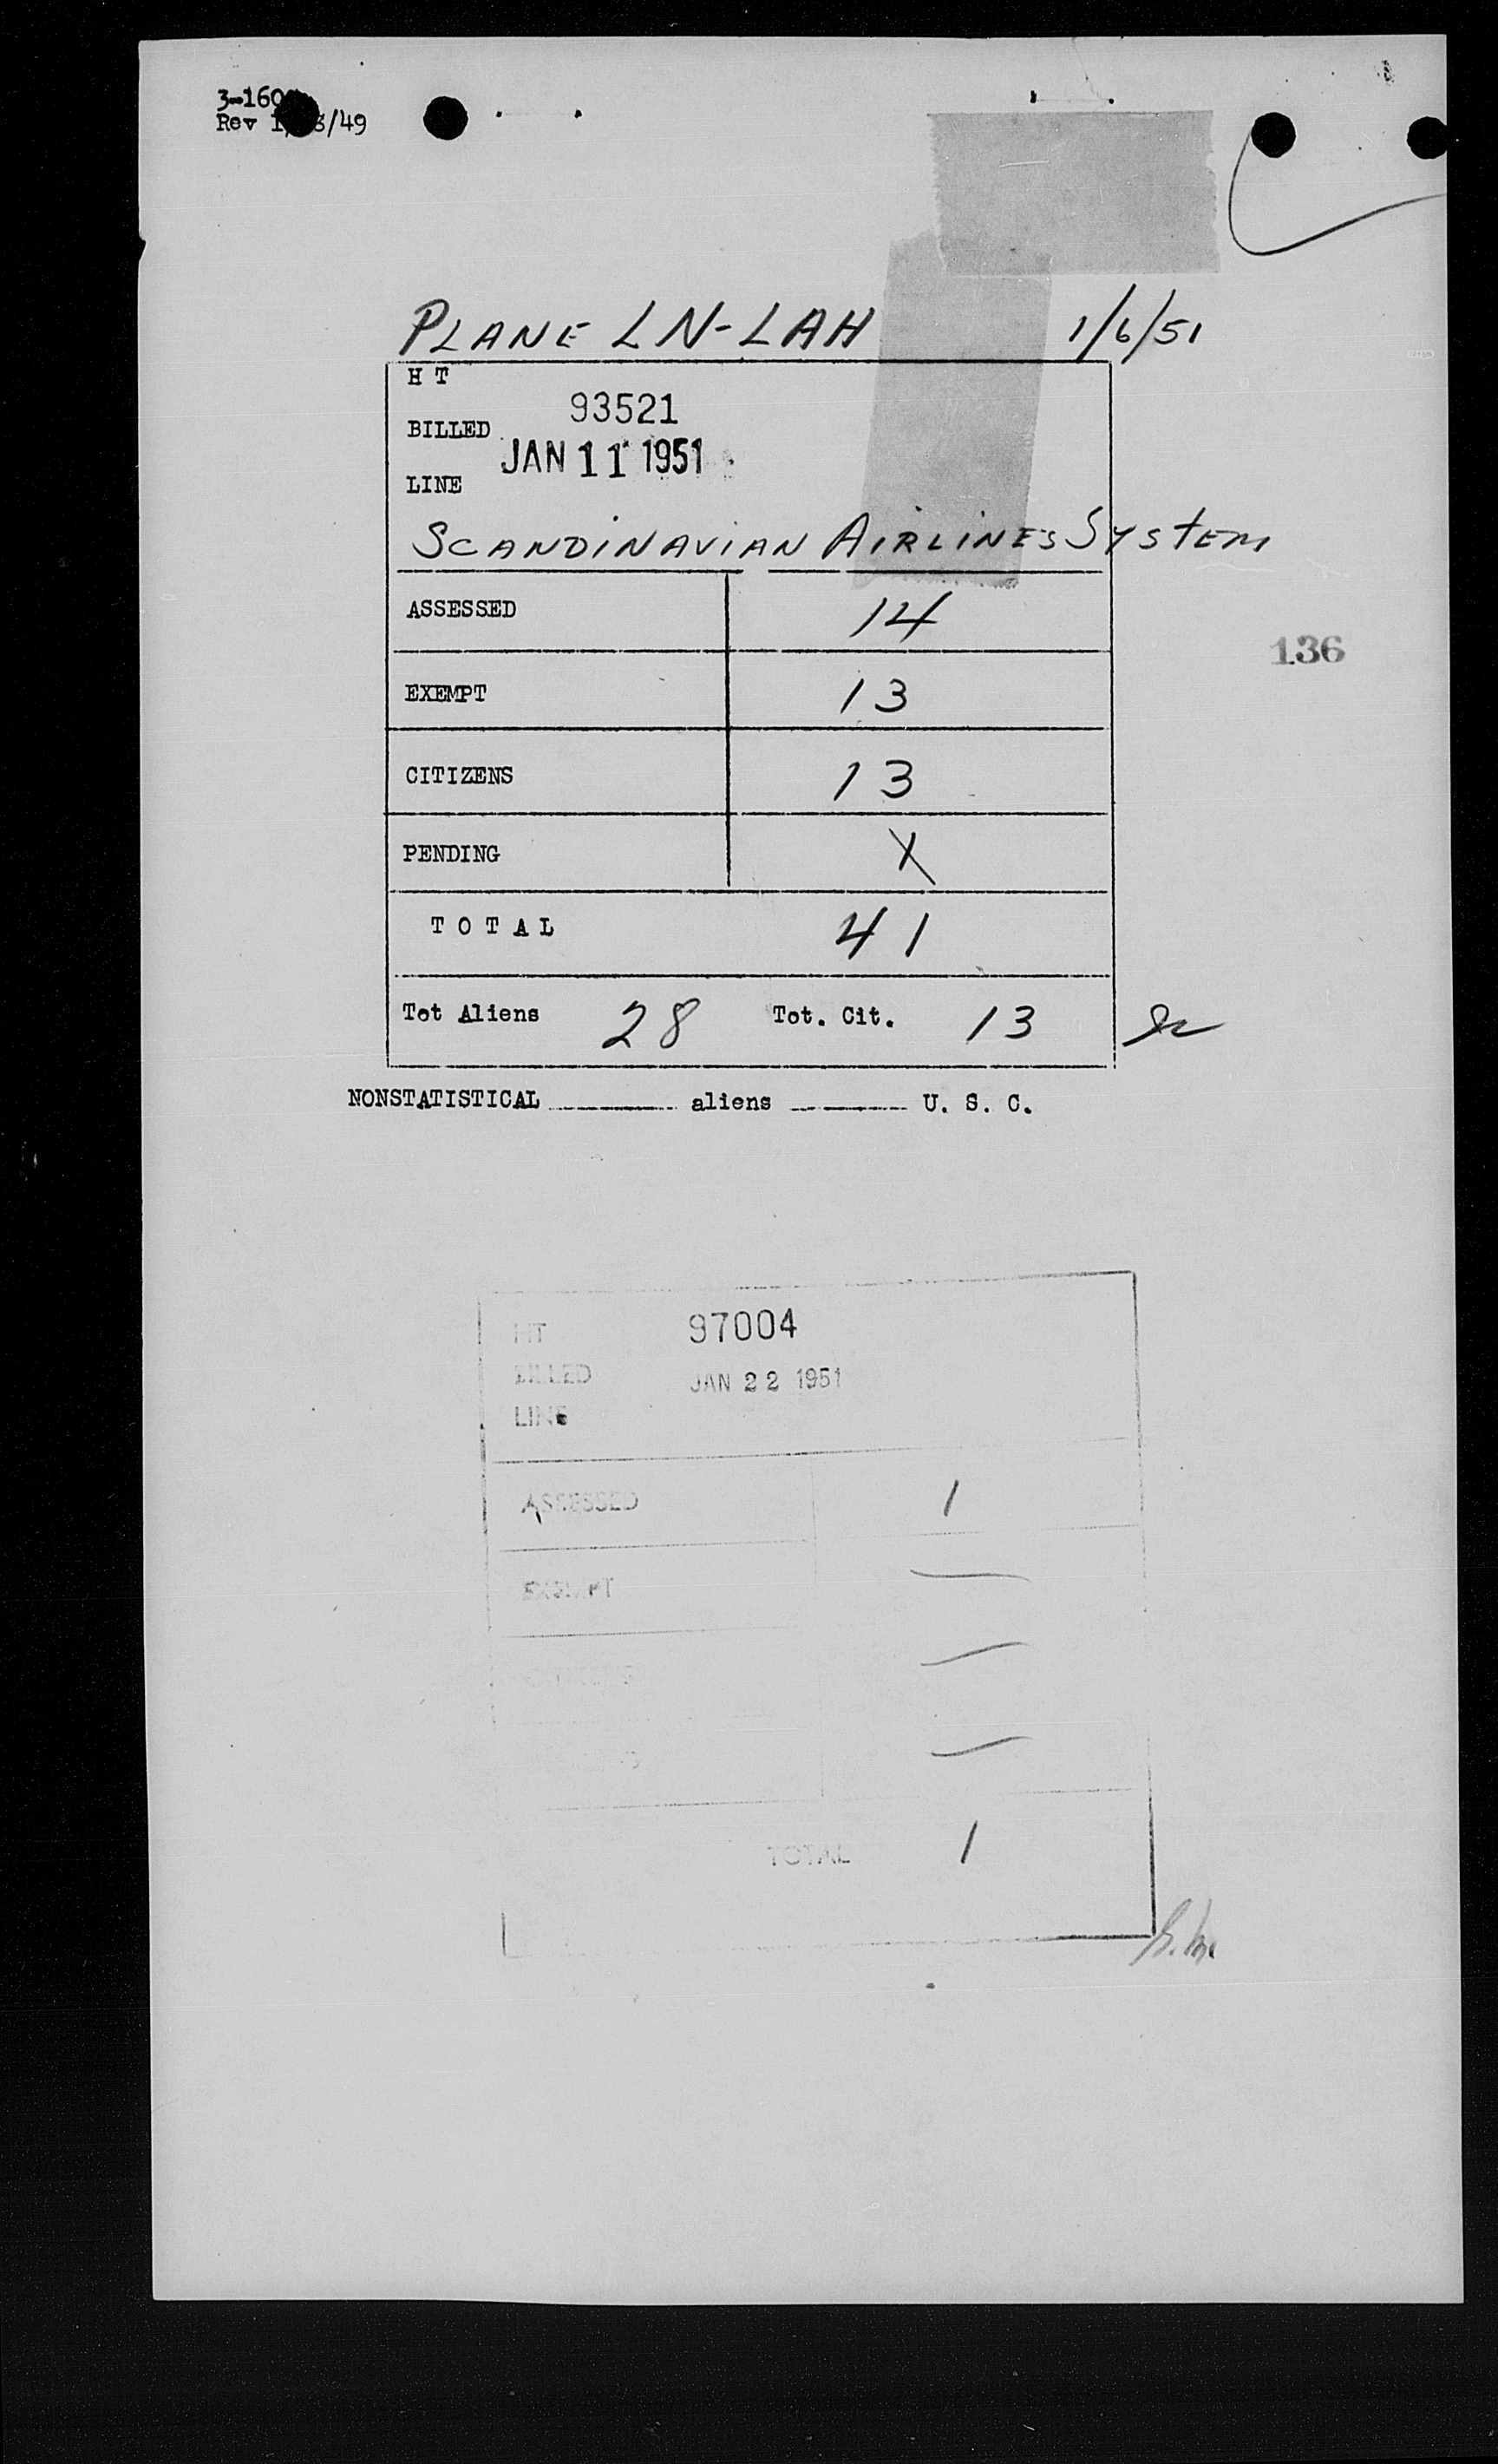 3-160
Rev 1/ /49
PLANE LN-LAH 1/6/51
H T
93521
BILLED
JAN 11 1951
LINE
SCANDINAVIAN AIRLINES SYSTEM
ASSESSED 14
136
EXEMPT 13
CITIZENS 13
PENDING X
TOTAL 41
Tot Aliens 28 Tot. Cit. 13
NONSTATISTICAL aliens U. S. C.
HT 97004
BILLED JAN 22 1951
LINE
ASSESSED 1
EXEMPT —
—
—
TOTAL 1